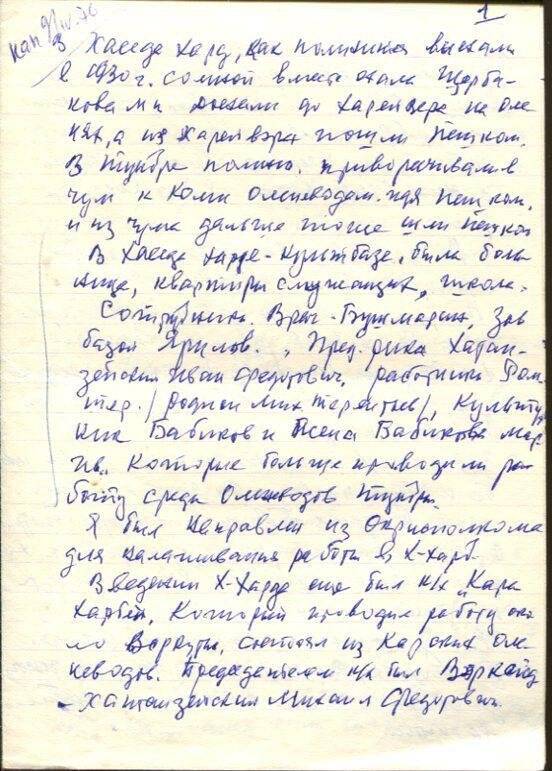 1
В Хаседа хард, как помнится выехали
в 1930 г. со мной вместе ехала Щерба-
кова мы доехали до Харейвера на оле-
нях, а из Харейвера пошли пешком.
В тундре помню. приворачивали в
чум к Коми оленеводам. идя пешком,
и из чума дальше тоже шли пешком
В Хаседа харде - культбазе, была боль
ница, квартиры служащих, школа.
Сотрудники. Врач - Бушмарин, Зав
базой Ярилов. Пред. рика Хатан-
зейский Иван Федорович, работники
(Родион Мих Терентьев), Культу
ник Бабиков и жена Бабикова
которые больше проводили ра
боту среди Оленеводов Тундры.
Я был направлен из Окрисполкома
для налаживания работы в Х-Хард.
В ведении Х-Харде еще был "Кара
Харбей, Который проводил работу око
ло Воркуты, состоял из Карских оле-
неводов. Председателем был
- Хатанзейский Михаил Федорович.